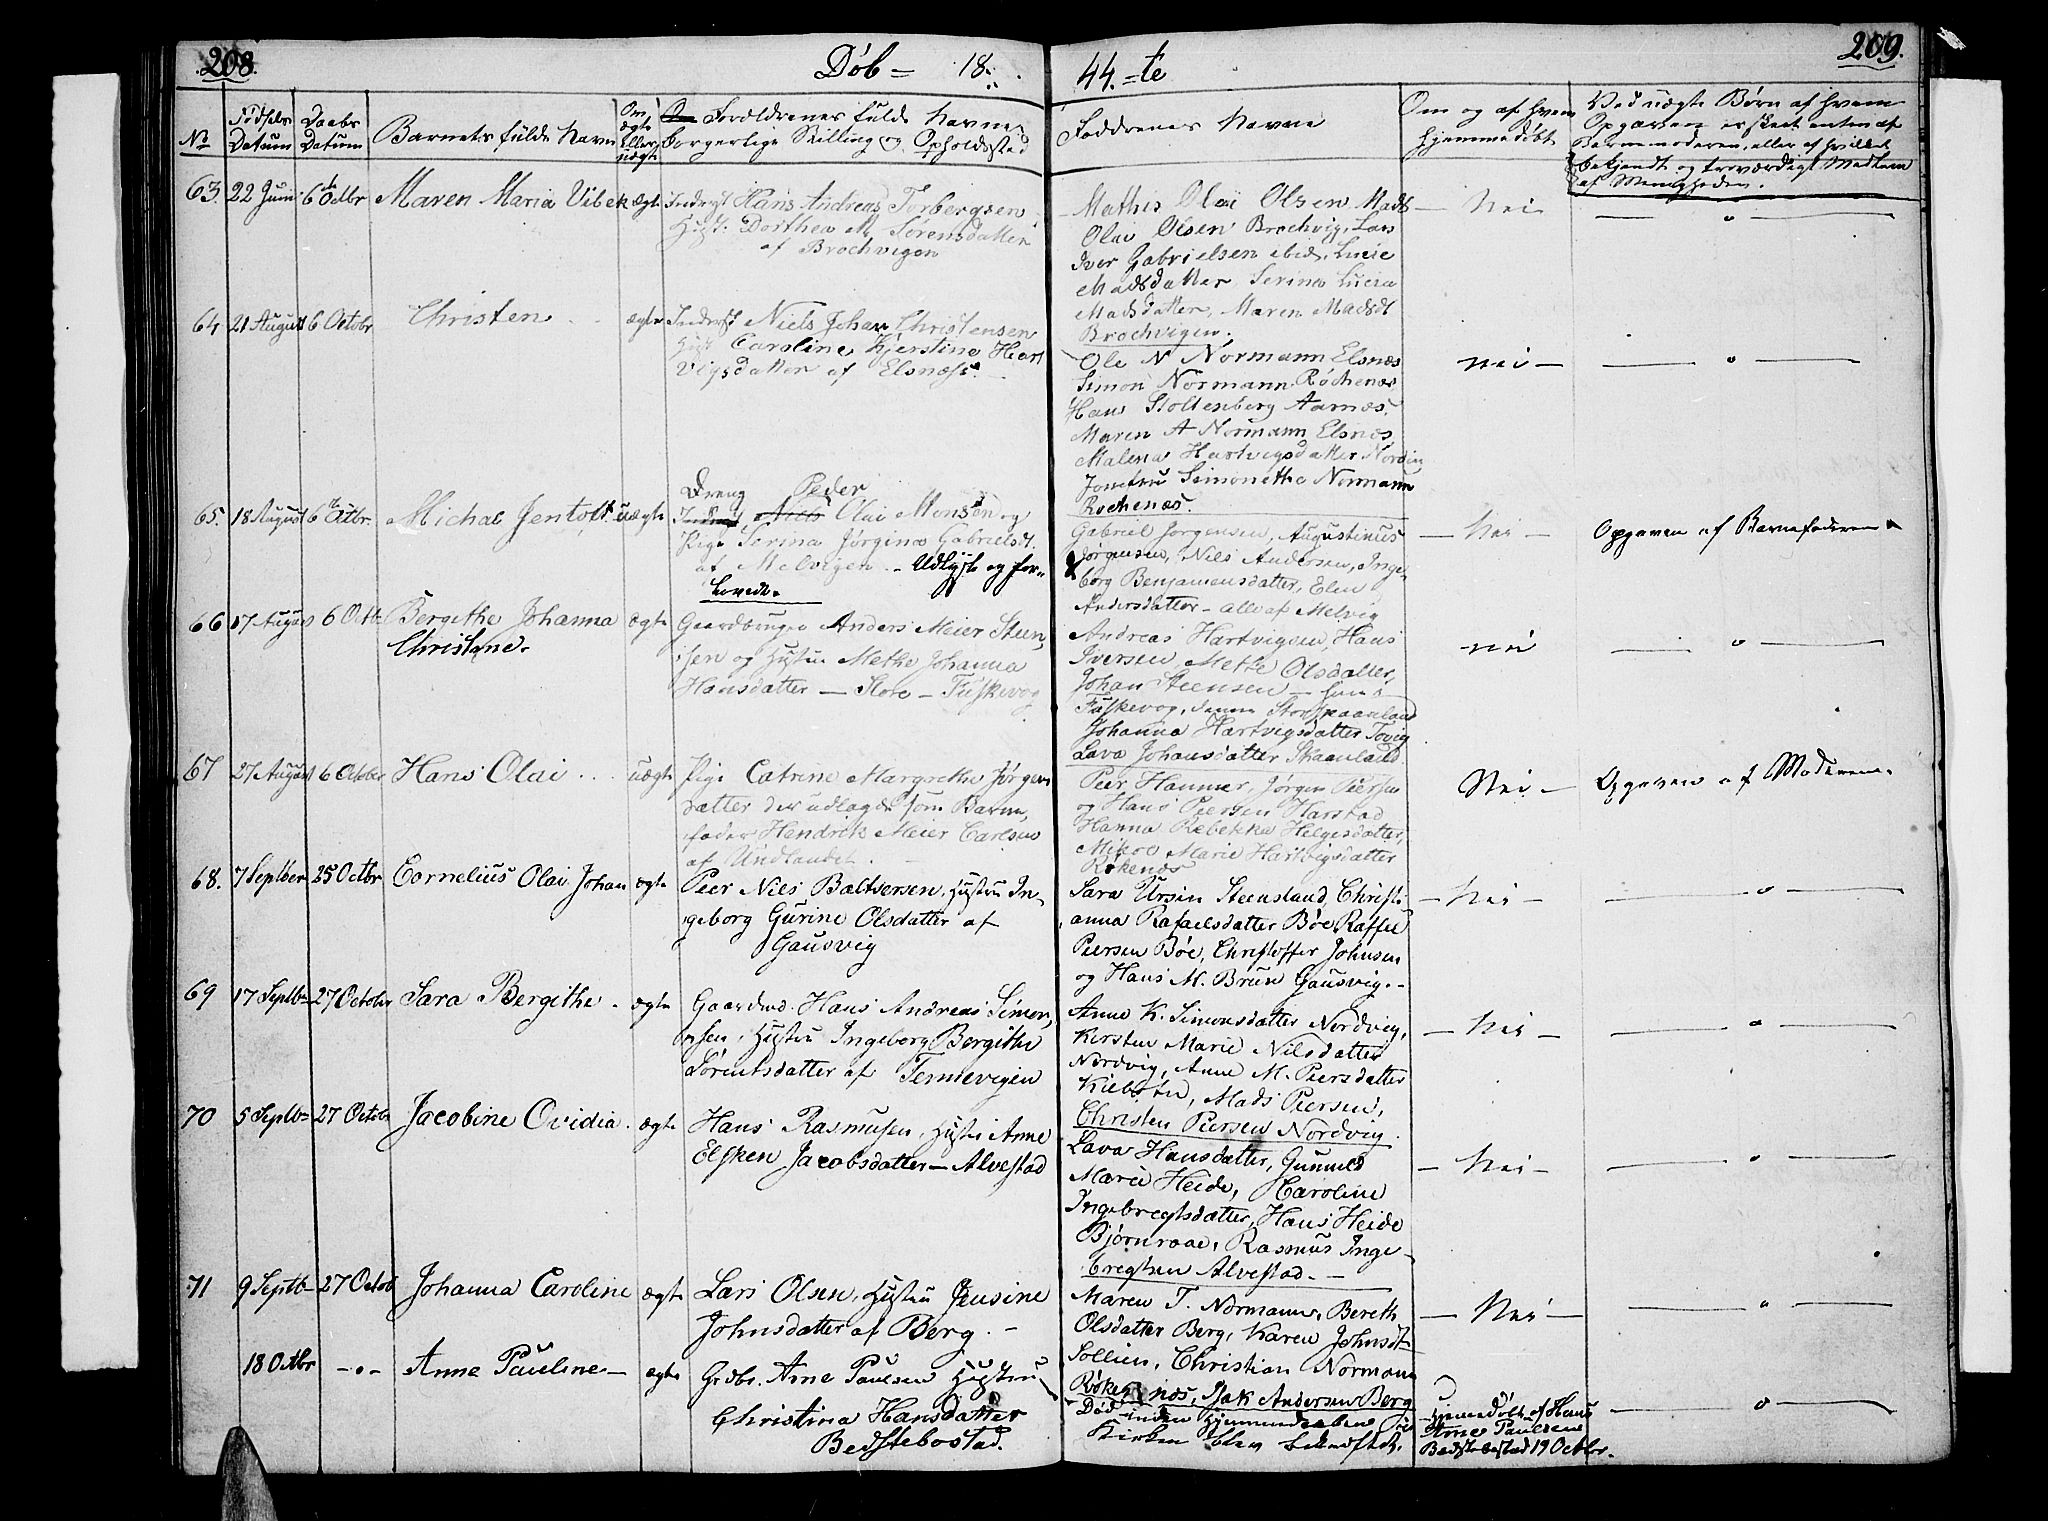 208.
Døb = 18
44.=te
209.
No
Fødsels Datum
Daabs Datum
Barnets fulde Navn
Om ægte eller uægte
Forældrenes fulde Navne
borgerlige Stilling og Opholdssted
Faddrenes Navne
Om og af hvem
hjemmedøbt
Ved uægte Børn af hvem
Opgaven er skeet enten af
Barnemoderen, eller af hvilket
bekjendt og troværdigt Medlem
af Menigheden.
63. 22 Juni 6 Octbr Maren Maria Vibek ægte Inderst Hans Andreas Torbergsen
Hust. Dorthea M. Sørensdatter
af Brochvigen
Mathis Olai Olsen Mads
Olai Olsen Brochvig, Lars
Iver Gabrielsen ibid, Lucie
Madsdatter, Serina Lucia
Madsdatter, Maren Madsdt
Brochvigen.
Nei
64 21 August 6 Octobr Christen ægte Inderst Niels Johan Christensen
Hust Caroline Kjerstina Hart
vigsdatter af Elsnæss.
Ole N Normann Elsnæs
Simon Normann Røchenæs
Hans Stoltenberg Aarnæs.
Maren A Normann Elsnæs
Malena Hartvigsdatter
Simonetha Normann
Rochenæs.
Nei
65. 18 August 6 Octbr. Michal Jentoft uægte Dreng Peder
Inderst, Niels Olai Monsen og
Pige Serina Jørgina Gabrielsdt.
af Melvigen - Udlyste og for-
lovede.
Gabriel Jørgensen, Augustinus
Jørgensen, Niels Andersen, Inge-
borg Benjamensdatter, Elen
Andersdatter - alle af Melvig
Nei
Opgaven af Barnefaderen
66 17 August 6 Octb Bergithe Johanna
Christane.
ægte Gaardbruger Anders Meier Steen,
sen og Hustru Methe Johanna
Hansdatter - Store - Fuskevog
Andreas Hartvigsen, Hans
Iversen, Mette Olsdatter,
Johan Steensen
Fuskevog,
Johanna Hartvigsdatter Tovig
Lava Johansdatter Skaanland.
Nei
67 27 August 6 October Hans Olai uægte Pige Catrine Margrethe Jørgens
datter der udlagde som Barne,
fader Hendrik Meier Carlsen
af Undlandet.
Peer Hammer, Jørgen Piersen
og Hans Piersen Harstad
Hanna Rebekka Helgesdatter,
Mikoe Marie Hartvigsdatter
Røkenæs
Nei
Opgaven af Moderen.
68. 7 Septber 25 Octbr Cornelius Olai Johan ægte Peer Nils Baltsersen, Hustru In-
geborg Gurine Olsdatter af
Gausvig
Sara Ursin Steensland, Christi-
anna Rafaelsdatter Bøe, Raffel
Piersen Bøe, Christoffer Johnsen
og Hans M. Bruun Gausvig.
Nei
69 17 Septb 27 October Sara Bergithe ægte Gaardmd. Hans Andreas Simon,
sen, Hustru Ingeborg Bergithe
Lorentsdatter af Tennevigen
Anne K. Simonsdatter Nordvig,
Kirsten Marie Nilsdatter
Nordvig, Anne M. Piersdatter
Kilbotn, Mads Piersen,
Christen Piersen Nordvig.
Nei
70 5 Septb 27 Octobr Jacobine Ovidia ægte Hans Rasmusen, Hustru Anne
Elsken Jacobsdatter - Alvestad
Lava Hansdatter, Gunild
Marie Heide, Karoline
Ingebregtsdatter, Hans Heide
Bjørnraae, Rasmus Inge-
bregtsen Alvestad.
Nei
71 9 Septb 27 Octob Johanna Caroline ægte Lars Olsen, Hustru Jensine
Johnsdatter af Berg.
Maren T. Normann, Bereth
Olsdatter Berg, Karen Johnsdt
Sollien, Christian Normann
Røkenæs, Isak Andersen Berg
Nei
18 Octbr -"- Anne Pauline ægte Grdbr. Arne Paulsen Hustru
Christina Hansdatter
Bedstebostad.
Død inden Hjemmedaaben i
Kirken blev bekræftet.
Hjemmedøbt af Hans
Arnes Paulsen
Bedstebostad 19 Octbr.